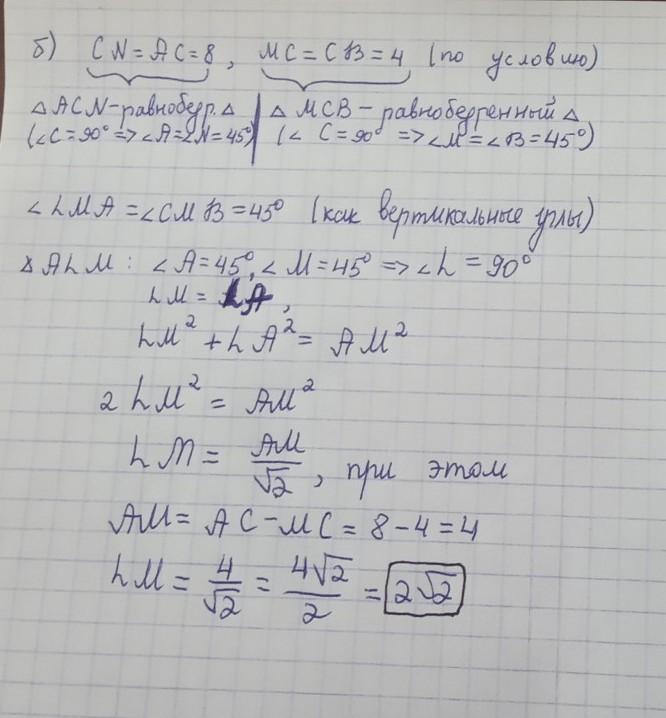 б) CN = AC = 8, MC = CB = 4 (по условию)
△ ACN - равнобедр. △ | △ MCB - равнобедренный △
(∠C = 90° => ∠A = ∠N = 45°) | (∠ C = 90° => ∠M = ∠B = 45°)
∠LMA = ∠CMB = 45° (как вертикальные углы)
△ ALM : ∠A = 45°, ∠M = 45° => ∠L = 90°
LM = LA,
LM² + LA² = AM²
2 LM² = AM²
LM = AM/√2, при этом
AM = AC - MC = 8 - 4 = 4
LM = 4/√2 = 4√2/2 = 2√2